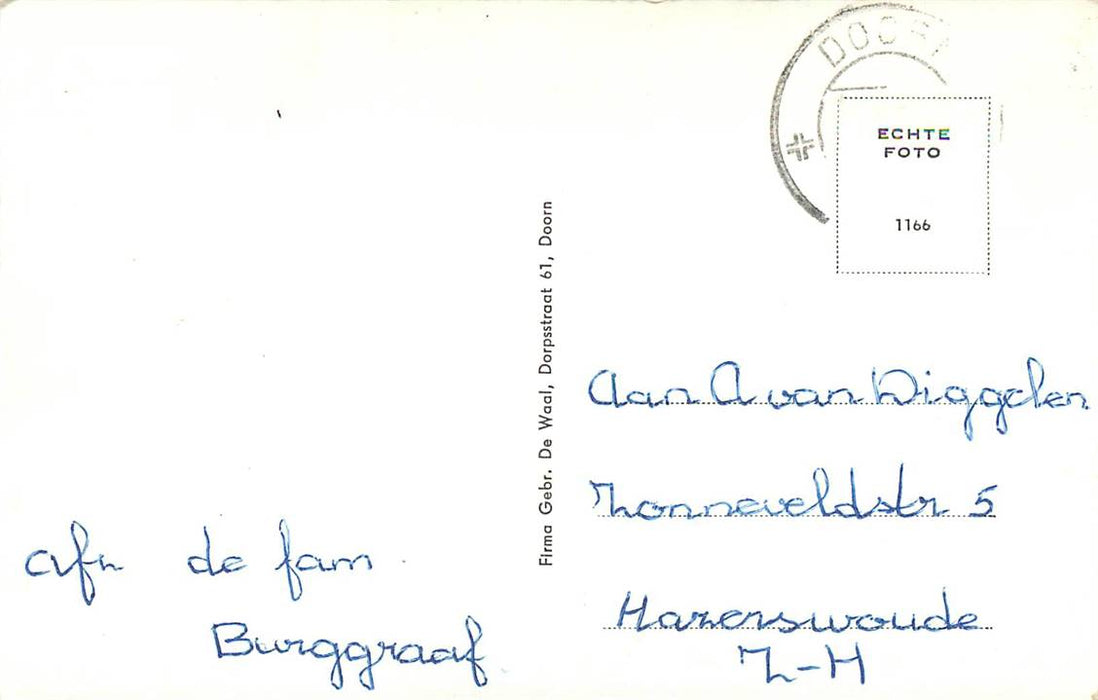 DOORN
ECHTE
FOTO
1166
Firma Gebr. De Waal, Dorpsstraat 61, Doorn
Aan A van Diggelen
Zonneveldstr 5
Hazerswoude
Z-H
afz de fam
Burggraaf